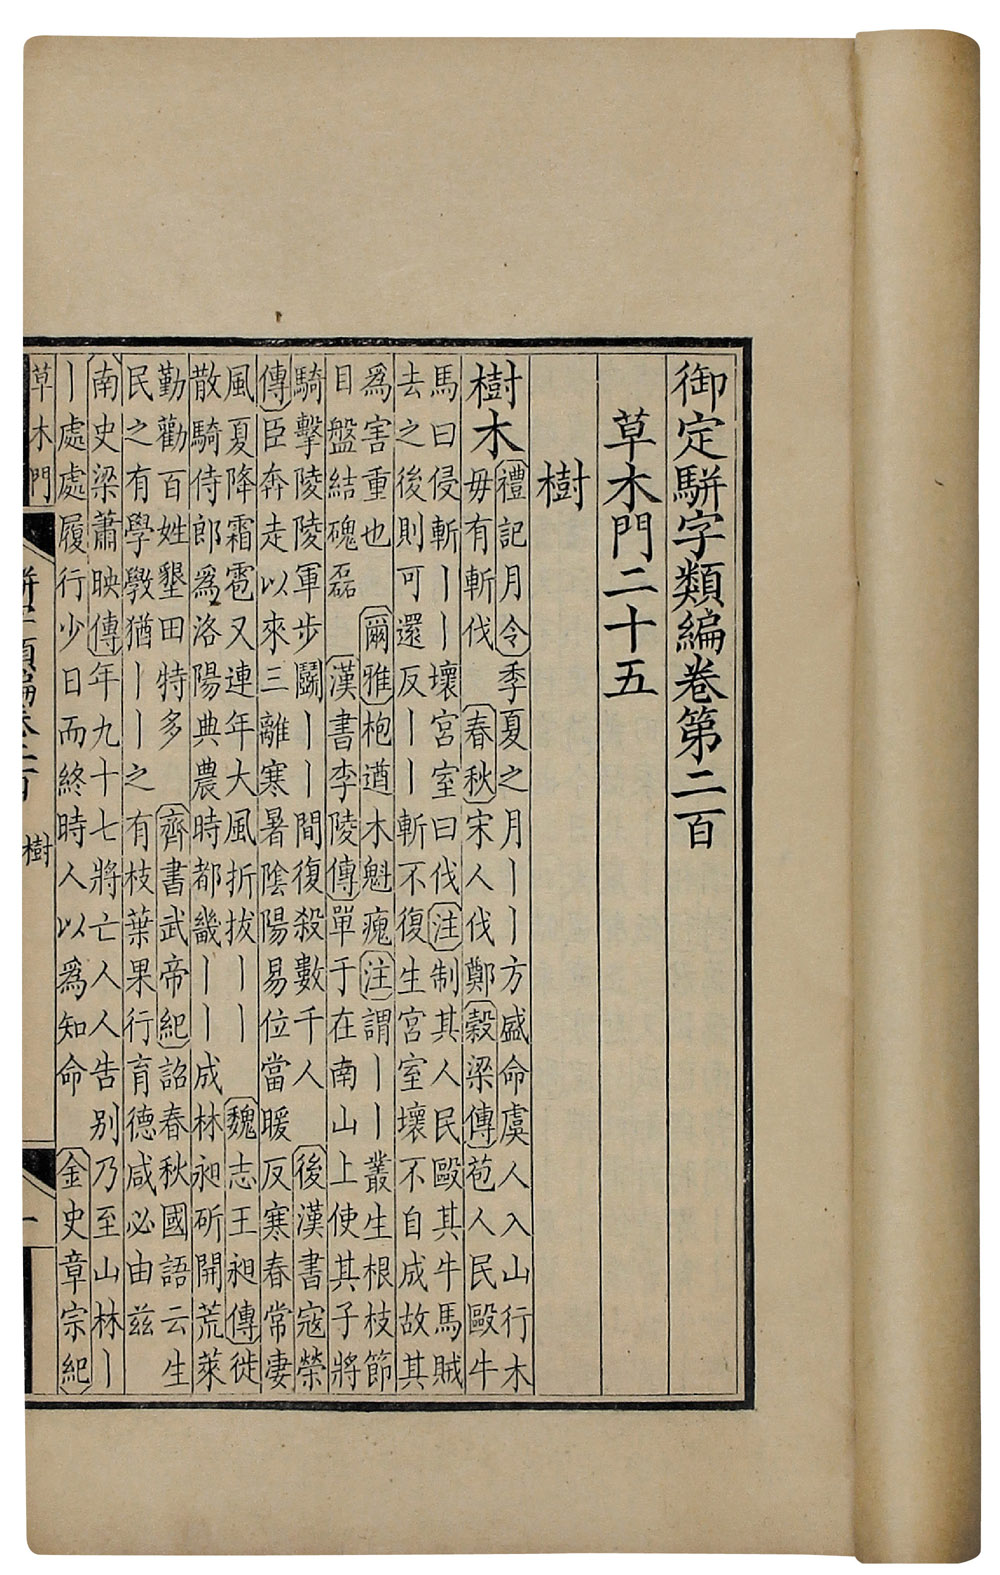 御定駢字類編卷第二百
草木門二十五
樹
樹木
禮記月令季夏之月丨丨方盛命虞人入山行木
毋有斬伐 春秋宋人伐鄭穀梁傳苞人民毆牛
馬曰侵斬丨丨壞宮室曰伐注制其人民毆其牛馬賊
去之後則可還反丨丨斬不復生宮室壞不自成故其
爲害重也 爾雅枹遒木魁瘣注謂丨丨叢生根枝節
目盤結磈磊 漢書李陵傳單于在南山上使其子將
騎擊陵陵軍步鬭丨丨間復殺數千人 後漢書寇榮
傳臣奔走以來三離寒暑陰陽易位當暖反寒春常凄
風夏降霜雹又連年大風折拔丨丨 魏志王昶傳徙
散騎侍郎爲洛陽典農時都畿丨丨成林昶斫開荒萊
勤勸百姓墾田特多 齊書武帝紀詔春秋國語云生
民之有學斆猶丨丨之有枝葉果行育德咸必由兹
南史梁蕭映傳年九十七將亡人人告别乃至山林丨
丨處處履行少日而終時人以爲知命 金史章宗紀
草木門 駢字類編卷二百 樹 一